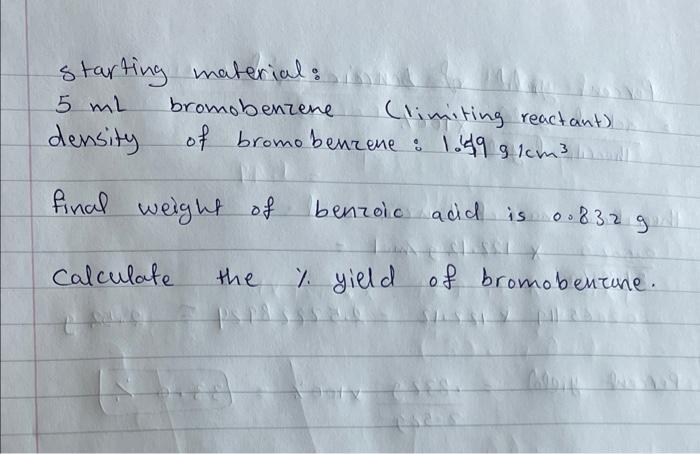 starting material:
5 mL bromobenzene (limiting reactant)
density of bromobenzene : 1.49 g/cm³
final weight of benzoic acid is 0.832 g
calculate the % yield of bromobenzene.